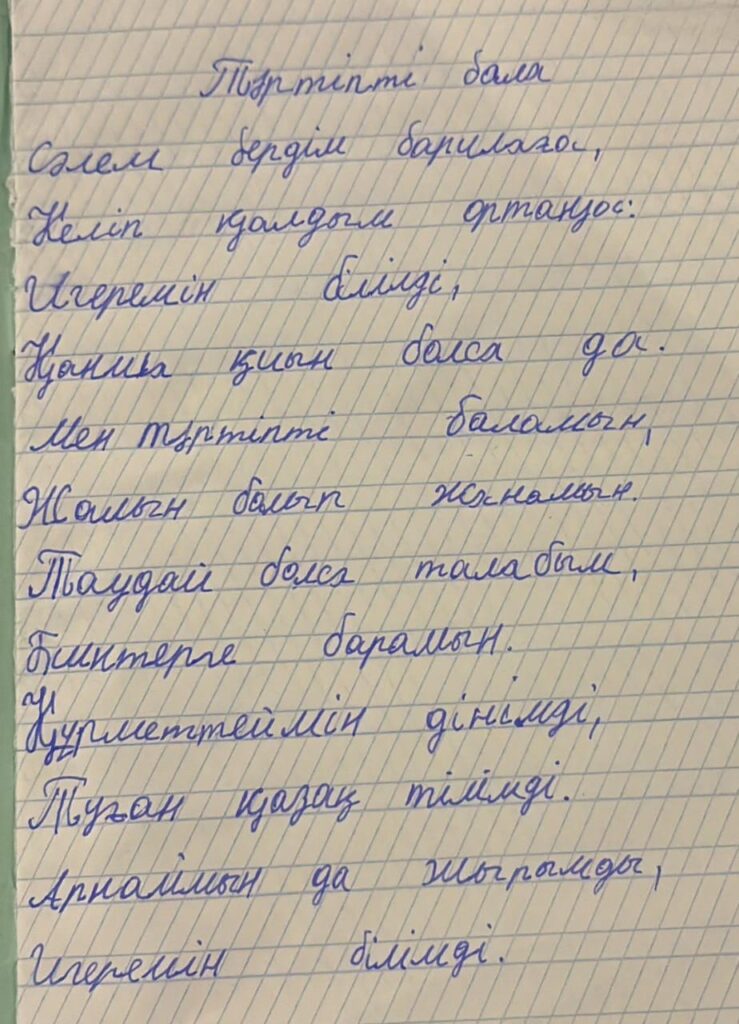 Тәртіпті бала
Сәлем бердім барилаға,
Келіп қалдым ортаңа:
Игеремін білімді,
Қанша қиын болса да.
Мен тәртіпті баламын,
Жалын болып жанамын.
Таудай болса талабым,
Биіктерге барамын.
Құрметтеймін дінімді,
Туған қазақ тілімді.
Арнаймын да жырымды,
Игеремін білімді.